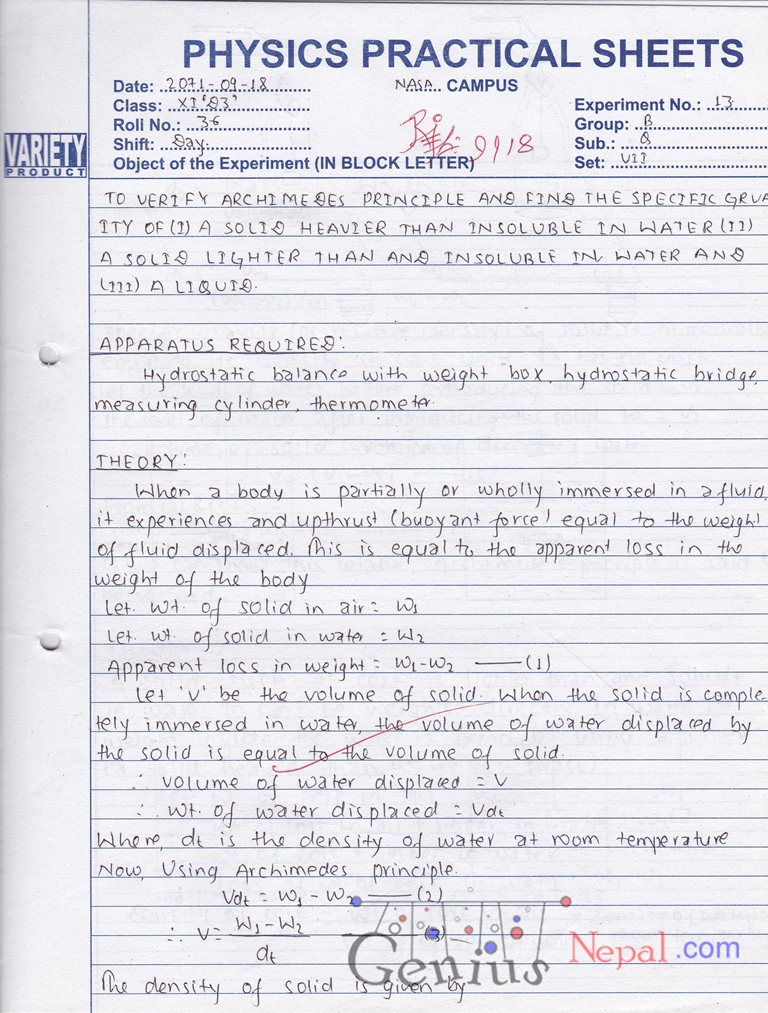 PHYSICS PRACTICAL SHEETS
Date: 2071-09-18
NASA CAMPUS
Class: XI 'D3'
Experiment No.: 13
Roll No.: 36
Group: B
Shift: Day
Sub.: Q
9/18
Set: VII
VARIETY
PRODUCT
Object of the Experiment (IN BLOCK LETTER)
TO VERIFY ARCHIMEDES PRINCIPLE AND FIND THE SPECIFIC GRVA
ITY OF (I) A SOLID HEAVIER THAN INSOLUBLE IN WATER (II)
A SOLID LIGHTER THAN AND INSOLUBLE IN WATER AND
(III) A LIQUID.
APPARATUS REQUIRED:
Hydrostatic balance with weight box, hydrostatic bridge,
measuring cylinder, thermometer.
THEORY:
When a body is partially or wholly immersed in a fluid,
it experiences and upthrust (buoyant force) equal to the weight
of fluid displaced. This is equal to the apparent loss in the
weight of the body
Let. wt. of solid in air = W₁
Let. wt. of solid in water = W₂
Apparent loss in weight = W₁-W₂ —(1)
Let 'v' be the volume of solid. When the solid is comple
tely immersed in water, the volume of water displaced by
the solid is equal to the volume of solid.
∴ volume of water displaced = V
∴ wt. of water displaced = Vdt
Where, dt is the density of water at room temperature
Now, Using Archimedes principle.
Vdt = W₁ - W₂ —(2)
∴ V = W₁-W₂ —(3)
dt
Genius Nepal.com
The density of solid is given by